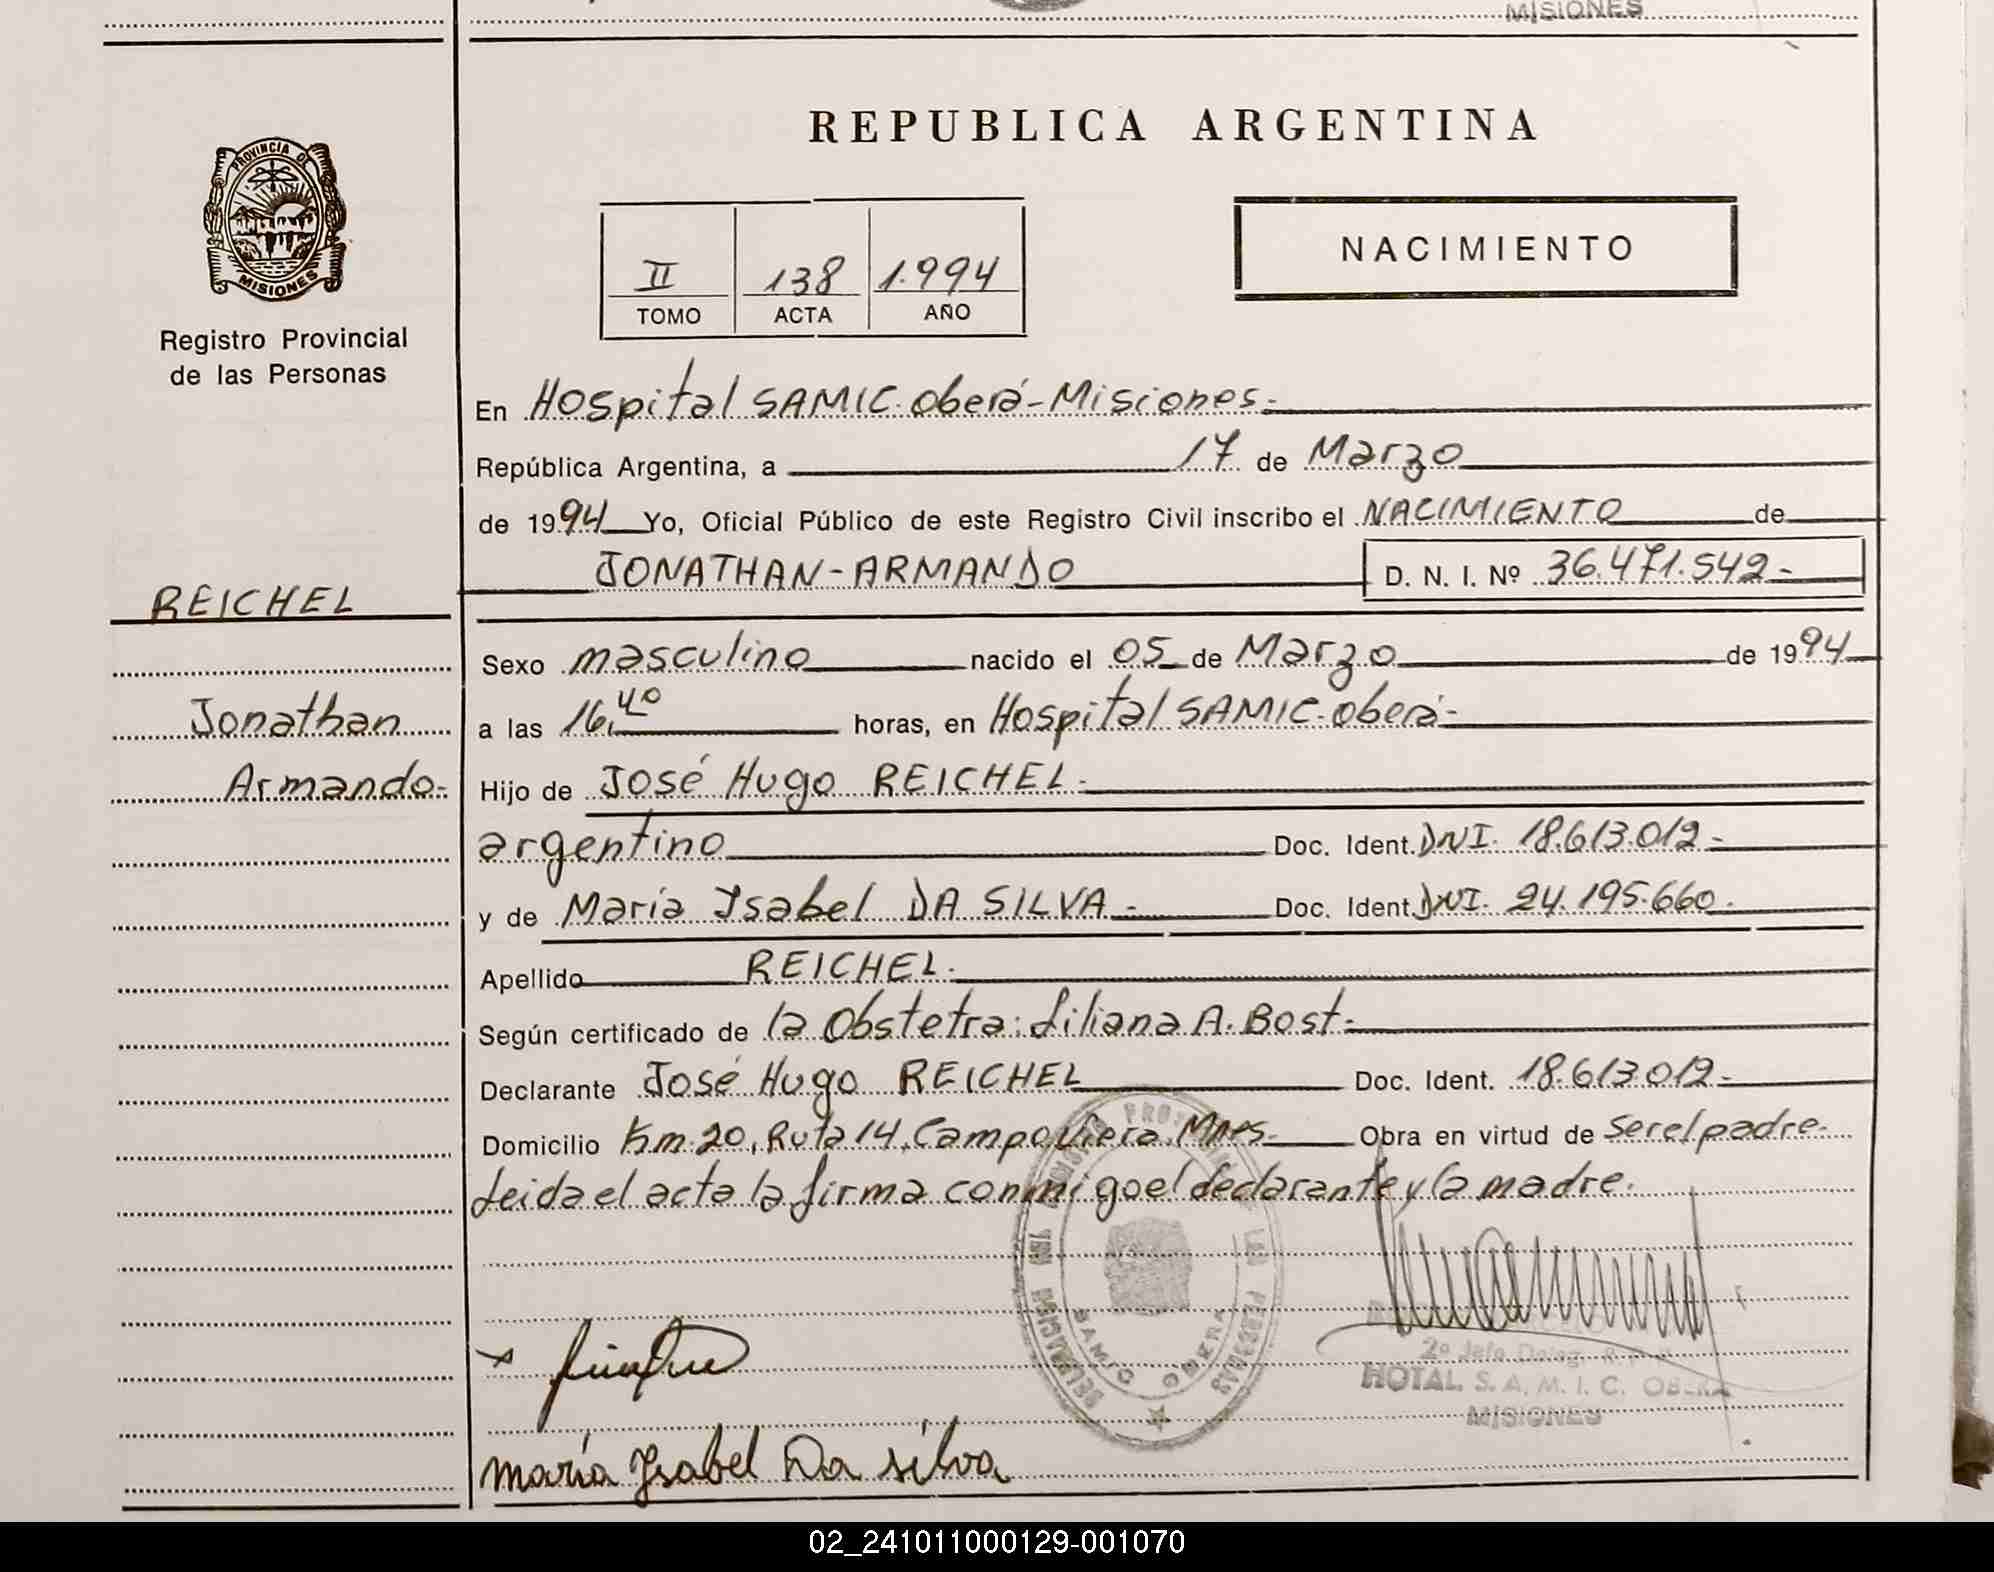 MISIONES
REPUBLICA ARGENTINA
PROVINCIA DE
MISIONES
Registro Provincial
de las Personas
II 138 1.994
TOMO ACTA AÑO
NACIMIENTO
En Hospital SAMIC. Oberá-Misiones.-
República Argentina, a 17 de Marzo
de 1994 Yo, Oficial Público de este Registro Civil inscribo el NACIMIENTO de
JONATHAN-ARMANDO D. N. I. Nº 36.471.542-
REICHEL
Jonathan
Armando-
Sexo masculino nacido el 05 de Marzo de 1994
a las 16,40 horas, en Hospital SAMIC-Oberá-
Hijo de José Hugo REICHEL-
argentino Doc. Ident. DNI. 18.613.012-
y de María Ysabel DA SILVA- Doc. Ident. DNI. 24.195.660.
Apellido REICHEL.
Según certificado de la Obstetra: Liliana A. Bost-
Declarante José Hugo REICHEL Doc. Ident. 18.613.012-
Domicilio Km.20, Ruta 14, Campo Viera. Mnes. Obra en virtud de ser el padre.
Leida el acta la firma conmigo el declarante y la madre.
SAMIC OBERA
2º Jefe Deleg. R.P.P.
HOTAL S. A. M. I. C. OBERA
MISIONES
maría Ysabel Da silva
02_241011000129-001070